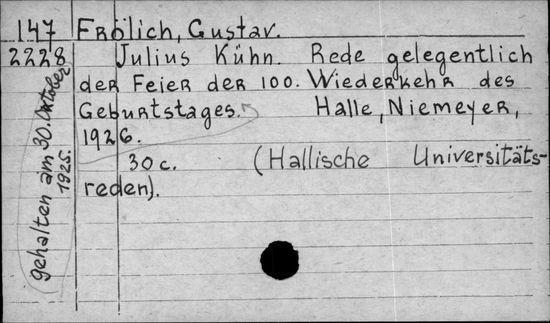 147 Frölich, Gustav.
2228 Julius Kühn. Rede gelegentlich
der Feier der 100. Wiederkehr des
Geburtstages. Halle, Niemeyer,
1926.
30 c. (Hallische Universitäts-
reden).
gehalten am 30. Oktober
1925.